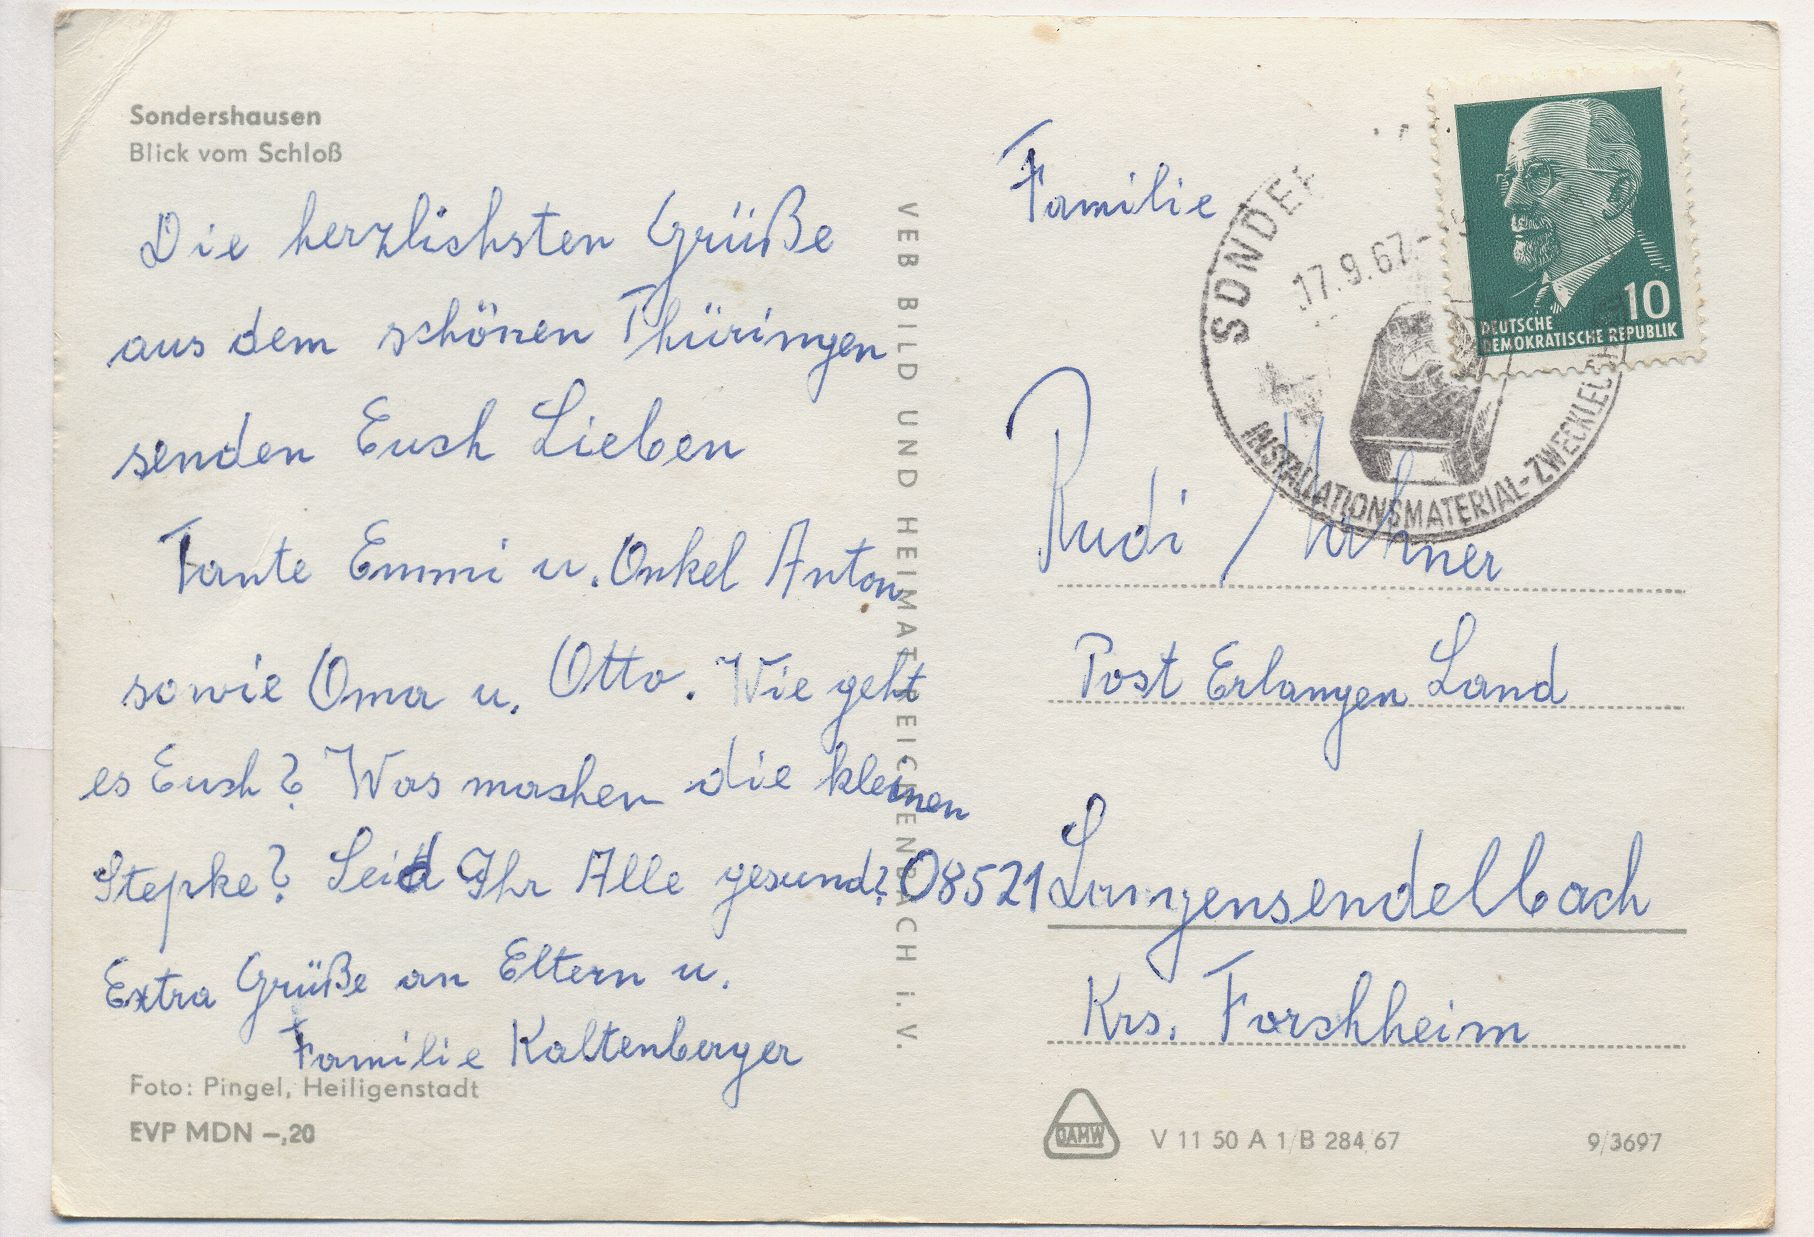 Sondershausen
Blick vom Schloß
Die herzlichsten Grüße
aus dem schönen Thüringen
senden Euch Lieben
Tante Emmi u. Onkel Anton
sowie Oma u. Otto. Wie geht
es Euch? Was machen die kleinen
Stepke? Seid Ihr Alle gesund?
Extra Grüße an Eltern u.
Familie Kaltenberger
Foto: Pingel, Heiligenstadt
EVP MDN –,20
VEB BILD UND HEIMAT REICHENBACH i. V.
Familie
Rudi
Post Erlangen Land
08521 Langensendelbach
Krs. Forchheim
SONDER
17.9.67
INSTALLATIONSMATERIAL-ZWECKLEUCHTEN
10
DEUTSCHE
DEMOKRATISCHE REPUBLIK
DAMW
V 11 50 A 1/B 284/67
9/3697